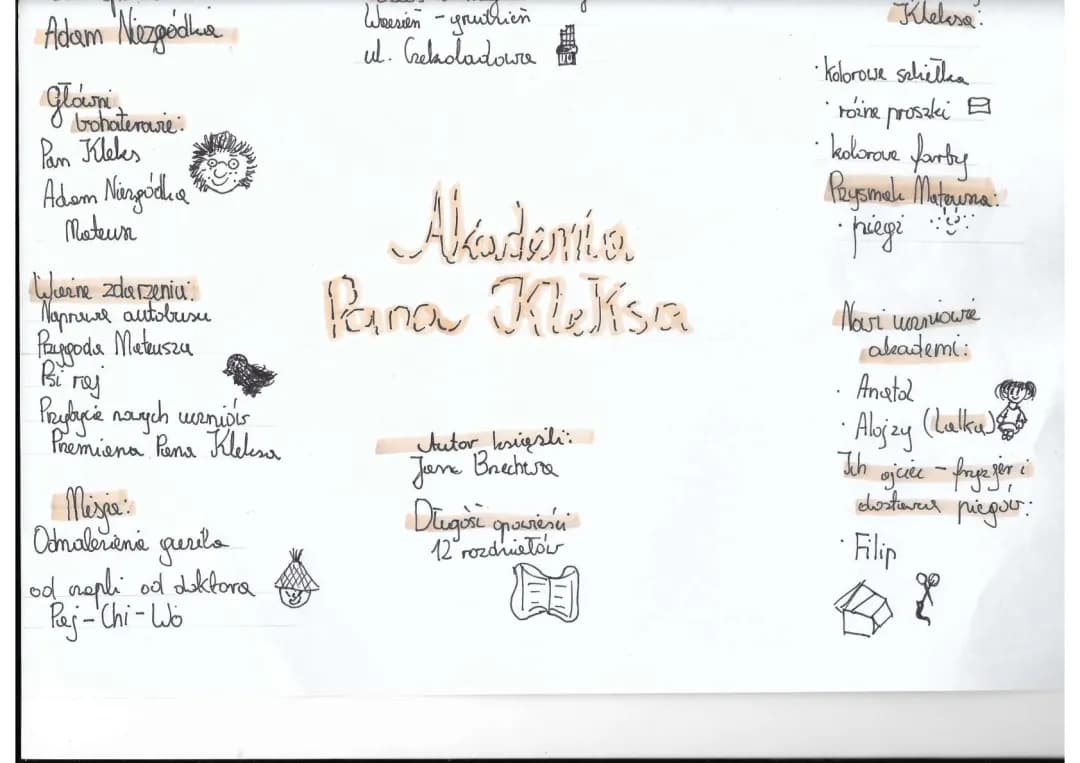 Adam Niezgódka
Główni
bohaterowie:
Pan Kleks
Adam Niezgódka
Mateusz
Ważne zdarzenia:
Naprawa autobusu
Przygoda Mateusza
Psi raj
Przybycie nowych uczniów
Przemiana Pana Kleksa
Misje:
Odnalezienie guzika
od czapki od doktora
Paj-Chi-Wo
Wrzesień - grudzień
ul. Czekoladowa
Akademia
Pana Kleksa
Autor książki:
Jan Brzechwa
Długość opowieści
12 rozdziałów
Kleksa:
· kolorowe szkiełka
· różne proszki
· kolorowe farby
Przysmak Mateusza:
· piegi
Nowi uczniowie
akademi:
· Anatol
· Alojzy (lalka)
Ich ojciec - fryzjer i
dostawca piegów:
· Filip